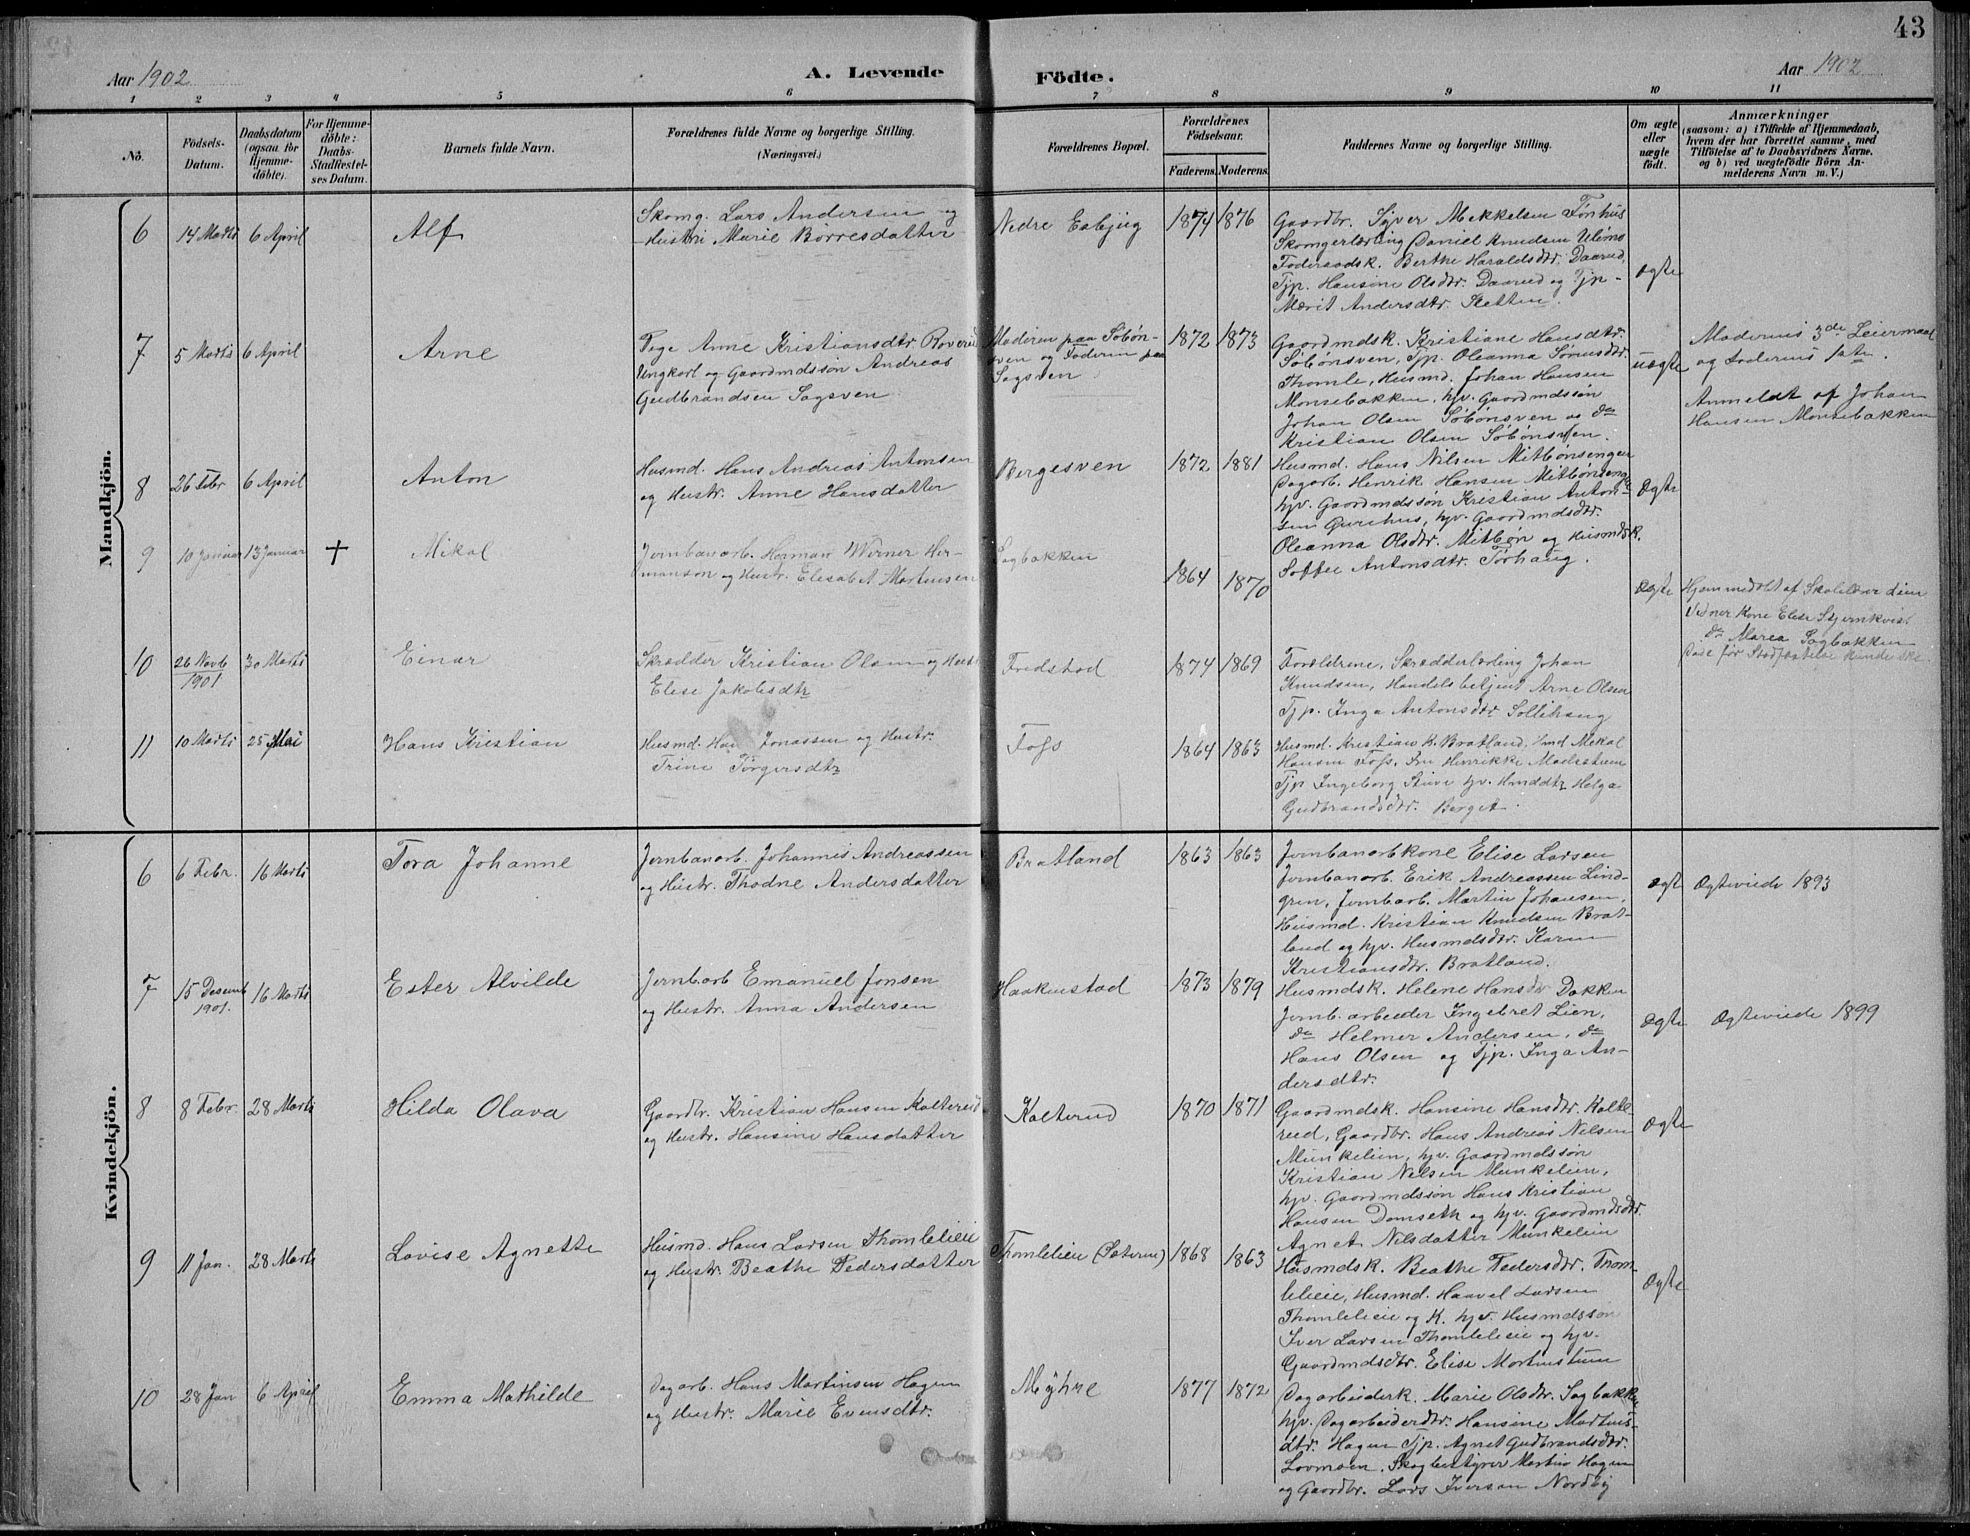 43
Aar 1902
A. Levende
Födte.
Aar 1902
1 2 3 4 5 6 7 8 9 10 11
No.
Födsels-
Datum.
Daabsdatum
(ogsaa for
Hjemme-
døbte).
For Hjemme-
døbte:
Daabs-
Stadfestel-
ses Datum.
Barnets fulde Navn.
Forældrenes fulde Navne og borgerlige Stilling.
(Næringsvei.)
Forældrenes Bopæl.
Forældrenes
Födselsaar.
Faderens. Moderens.
Faddernes Navne og borgerlige Stilling.
Om ægte
eller
uægte
født.
Anmærkninger
(saasom: a) i Tilfælde af Hjemmedaab,
hvem der har forrettet samme, med
Tilföielse af to Daabsvidners Navne.
og b) ved uægtefödte Börn An-
melderens Navn m. V.)
Mandkjön.
6 14 Marts 6 April Alf
Skomg. Lars Andersen og
Hustru Marie Börresdatter
Nedre Esbjug 1874 1876
Gaardbr. Syver Mekkelsen Fønhus
Skomgerlærling Daniel Knudsen
Foderaadsk. Berthe Haraldsdtr. Daarud,
Tjp. Hansine Olsdtr. Daarud og Tjp
Marit Andersdtr. Sletten.
ægte
7 5 Marts 6 April Arne
Pige Anne Kristiansdtr
Ungkarl og Gaardmdssøn Andreas
Gudbrandsen Sagsven
Moderen paa Søbøn-
sven og Faderen paa
Sagsven
1872 1873
Gaardmdsk. Kristiane Hansdtr.
Søbønsven, Tjp. Oleanna
Thomle, Husmd. Johan Hansen
Monsebakken, hjv. Gaardmdssøn
Johan Olsen Søbønsven og do
Kristian Olsen Søbønsven.
uægte
Moderens 3de Leiermaal
og Faderens 1ste.
Anmeldt af Johan
Hansen Monsebakken
8 26 Febr 6 April Anton
Husmd. Hans Andreas Antonsen
og Hustr. Anne Hansdatter
Bergesven 1872 1881
Husmd. Hans Nilsen Mitbønsengen
Dagarb. Henrik Hansen Mitbønsenge
hjv. Gaardmdssøn Kristian Anton-
sen hjv. Gaardmdsdtr.
Oleanna Olsdtr. Mitbøn og Husmdsk.
Antonsdtr. Tørhaug.
ægte
9 10 Januar 13 Januar + Mikal
Jernbanarb. Herman Werner Her-
manson og Hustr. Elisabet Martinsen
Sagbakken
1864 1870
ægte
Hjemmedøbt af Skolelærer Lien
Vidner Kone Elise Stjernkvist
do Marea Sagbakken
Død før Stadfæstelse kunde ske.
10 26 Novb 1901 30 Marts Einar
Skrædder Kristian Olsen og Hustr
Elise Jakobsdtr
Fredstad 1874 1869
Forældrene, Skrædderlærling Johan
Knudsen, Handelsbetjent Arne Olsen
Tjp. Inga Antonsdtr Sollihaug
11 10 Marts 25 Mai Hans Kristian
Husmd. Hans Jonassen og Hustr.
Trine Törgersdtr
Foss 1864 1863
Husmd. Kristian K. Bratland, Hmd Mekal
Hansen Foss. Fru Henrikke
Tjp Ingeborg hjv. Hmddtr Helga
Gudbrandsdtr. Berget.
Kvindekjön.
6 6 Febr. 16 Marts Tora Johanne
Jernbanarb. Johannes Andreassen
og Hustr. Thodne Andersdatter
Bratland 1863 1863
Jernbanarbkone Elise Larsen
Jernbanarb. Erik Andreassen Lind-
gren, Jernbarb. Martin Johansen,
Husmd. Kristian Knudsen Brat-
land og hjv. Husmdsdtr. Karen
Kristiansdtr. Bratland.
ægt Ægteviede 1893
7 15 Desemb 1901. 16 Marts Ester Alvilde
Jernbarb Emanuel Jonsen
og Hustr. Anna Andersen
Haakenstad 1873 1879
Husmdsk. Helene Hansdtr Dokken
Jernb. arbeider Ingebret Lien,
do Helmer Andersen, do
Hans Olsen og Tjp. Inga An-
dersdtr.
ægte Ægteviede 1899
8 8 Febr. 28 Marts Hilda Olava
Gaardbr. Kristian Hansen Kalterud
og Hustr. Hansine Hansdatter
Kalterud 1870 1871
Gaardmdsk. Hansine Hansdtr. Kalte-
rud, Gaardbr. Hans Andreas Nilsen
Munkelien, hjv. Gaardmdssøn
Kristian Nilsen Munkelien,
hjv. Gaardmdssøn Hans Kristian
Hansen Domseth og hjv. Gaardmdsdtr.
Agnet Nilsdatter Munkelien
ægte
9 11 Jan. 28 Marts Lovise Agnette
Husmd. Hans Larsen Thomleleie
og Hustr. Beathe Pedersdatter
Thomleleie (Sæteren) 1868 1863
Husmdsk. Beathe Pedersdtr. Thom-
leleie, Husmd. Haavel Larsen
Thomleleie og K. hjv. Husmdssøn
Iver Larsen Thomleleie og hjv.
Gaardmdsdtr. Elise Mortenstuen
ægte
10 28 Jan 6 April Emma Mathilde
Dagarb. Hans Martinsen Hagen
og Hustr. Marie Evensdtr.
Myhre 1877 1872
Dagarbeiderk. Marie Olsdtr. Sagbakke
hjv. Dagarbeiderdtr. Hansine Martins-
dtr. Hagen Tjp. Agnet Gudbrandsdtr.
Lovmoen, Skogbestyrer Martin Hagen
og Gaardbr. Lars Iversen Nordby